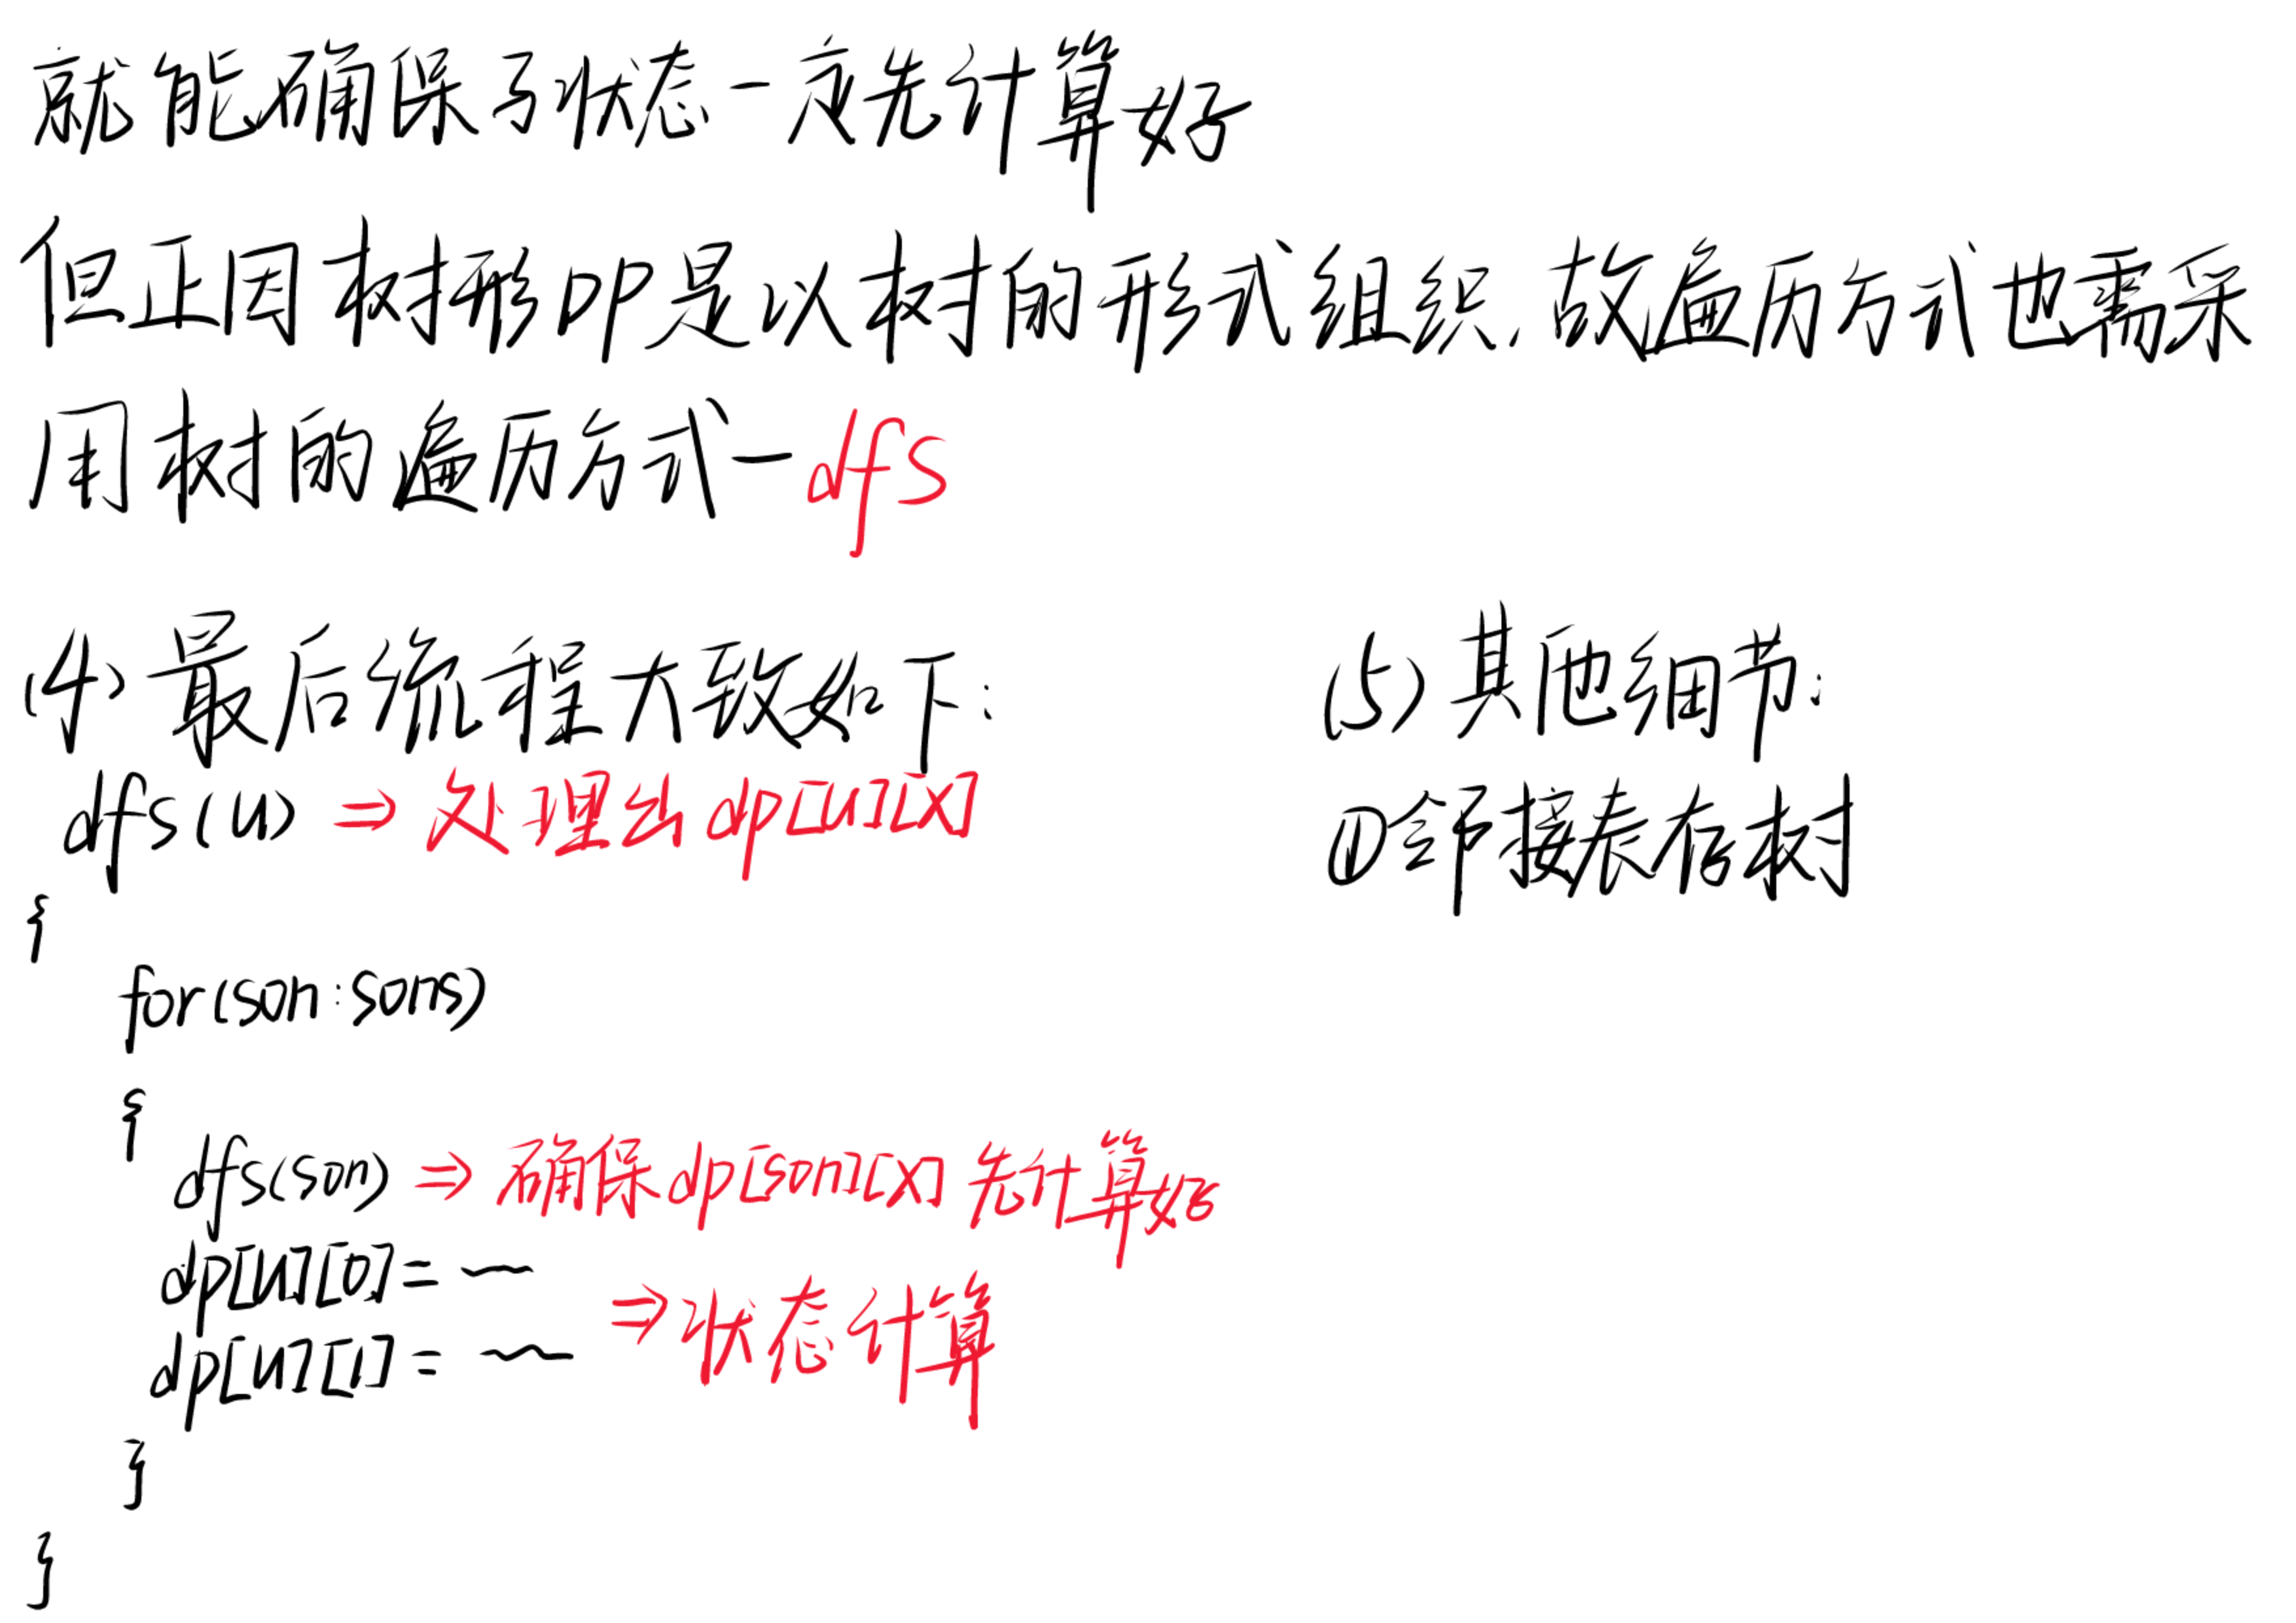 就能确保子状态一定先计算好
但正因树形DP是以树的形式组织,故遍历方式也需采
用树的遍历方式—dfs
(4) 最后流程大致如下:
dfs(u) ⇒ 处理出dp[u][x]
{
for(son:sons)
{
dfs(son) ⇒ 确保dp[son][x]先计算好
dp[u][0]= ~
dp[u][1]= ~ ⇒状态计算
}
}
(5)其他细节:
①邻接表存树